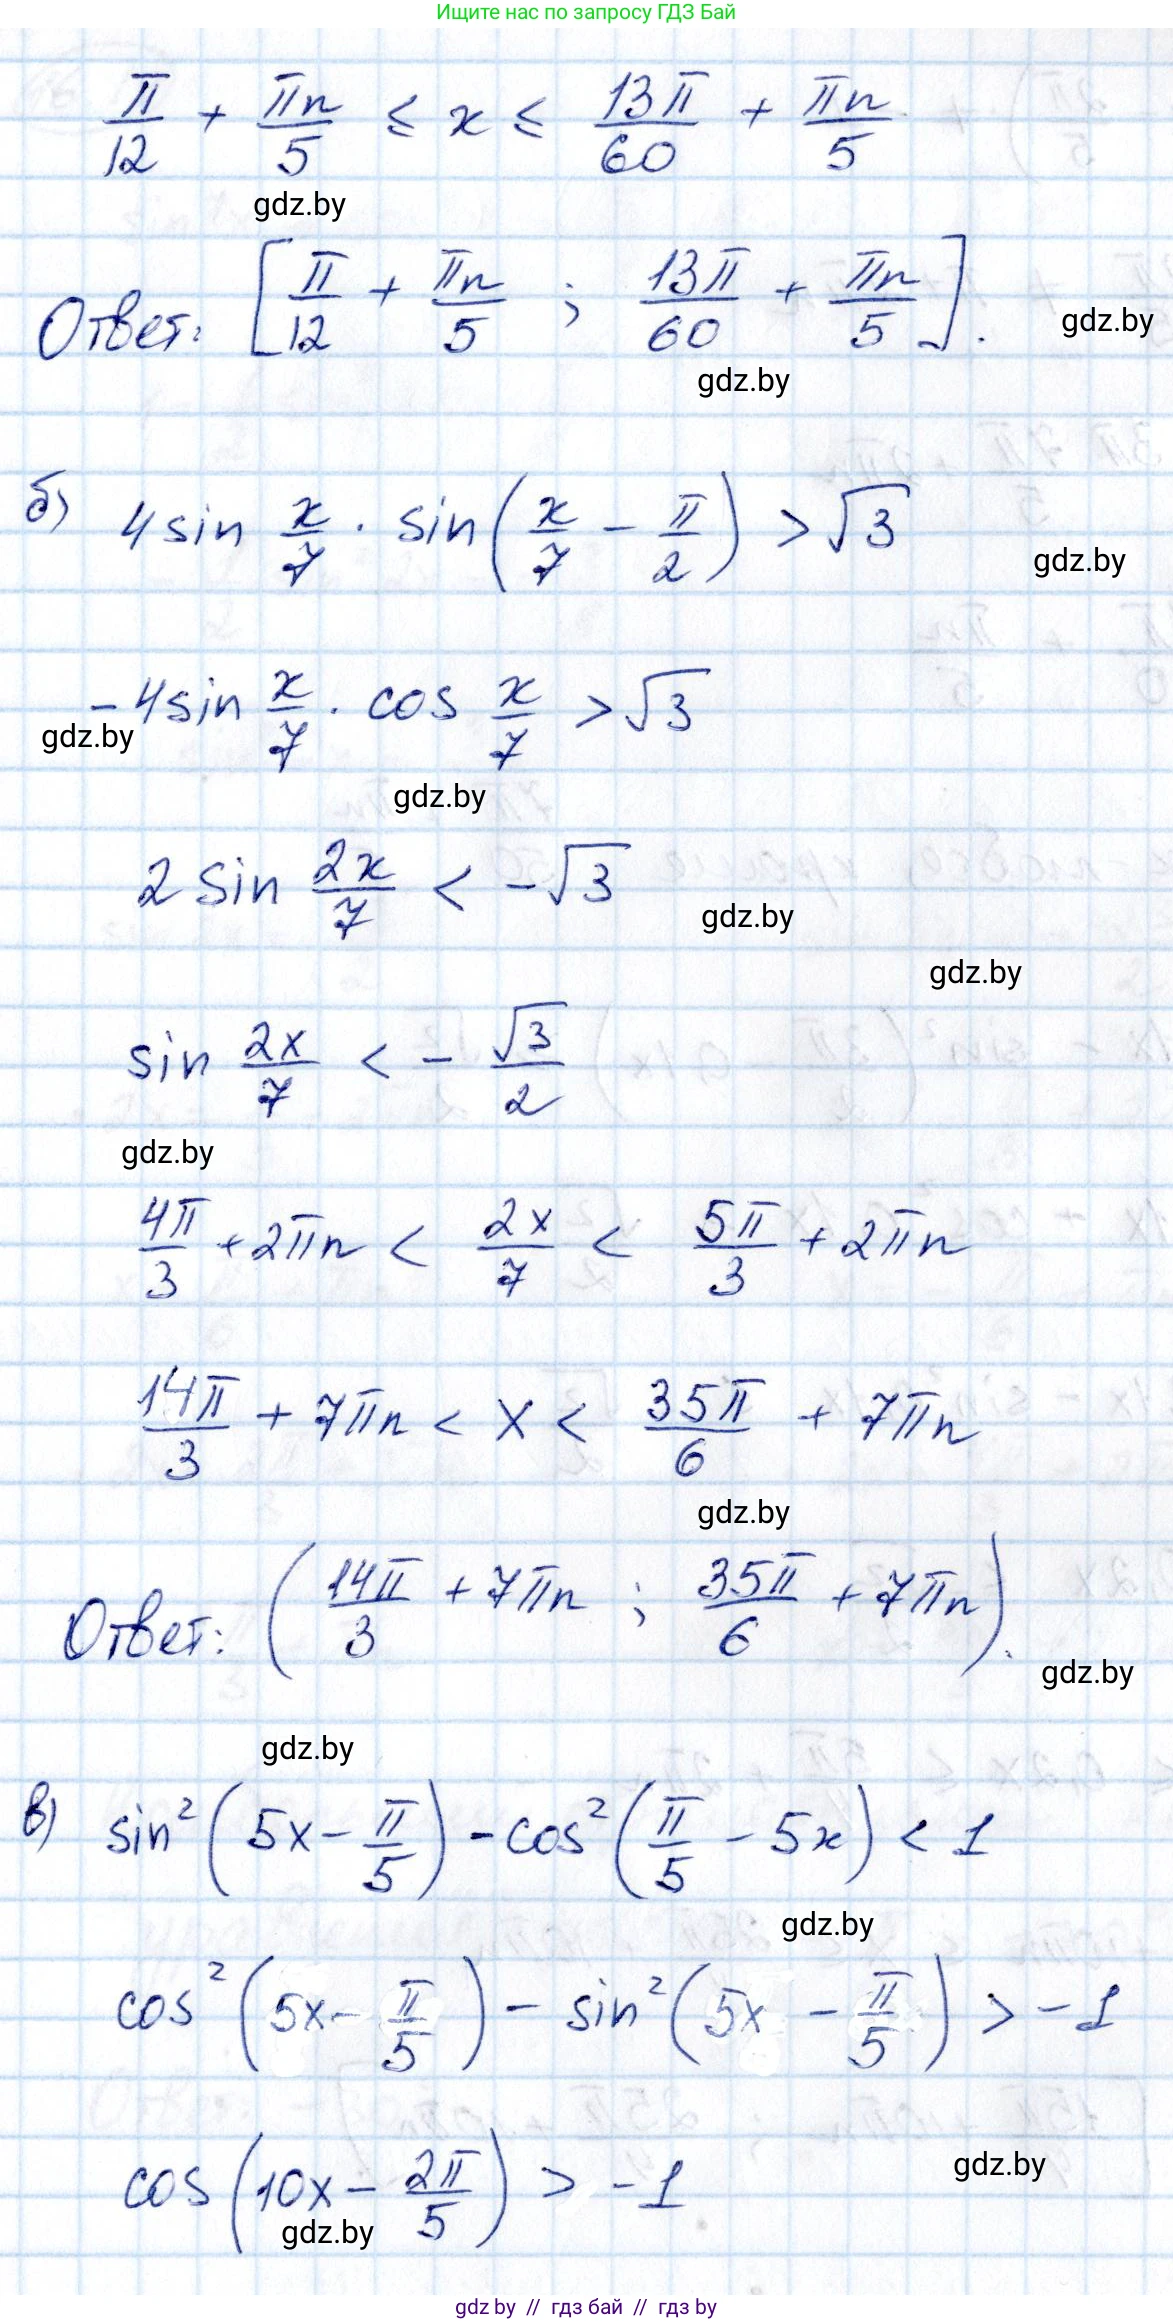 Ищите нас по запросу ГДЗ Бай
π/12 + πn/5 ≤ x ≤ 13π/60 + πn/5
gdz.by
Ответ: [π/12 + πn/5 ; 13π/60 + πn/5].
gdz.by
gdz.by
б) 4 sin x/7 · sin(x/7 − π/2) > √3
gdz.by
−4 sin x/7 · cos x/7 > √3
gdz.by
gdz.by
2 sin 2x/7 < −√3
gdz.by
gdz.by
sin 2x/7 < − √3/2
gdz.by
4π/3 + 2πn < 2x/7 < 5π/3 + 2πn
14π/3 + 7πn < x < 35π/6 + 7πn
gdz.by
Ответ: (14π/3 + 7πn ; 35π/6 + 7πn).
gdz.by
gdz.by
в) sin²(5x − π/5) − cos²(π/5 − 5x) < 1
gdz.by
cos²(5x − π/5) − sin²(5x − π/5) > −1
gdz.by
cos(10x − 2π/5) > −1
gdz.by
gdz.by // гдз бай // гдз by